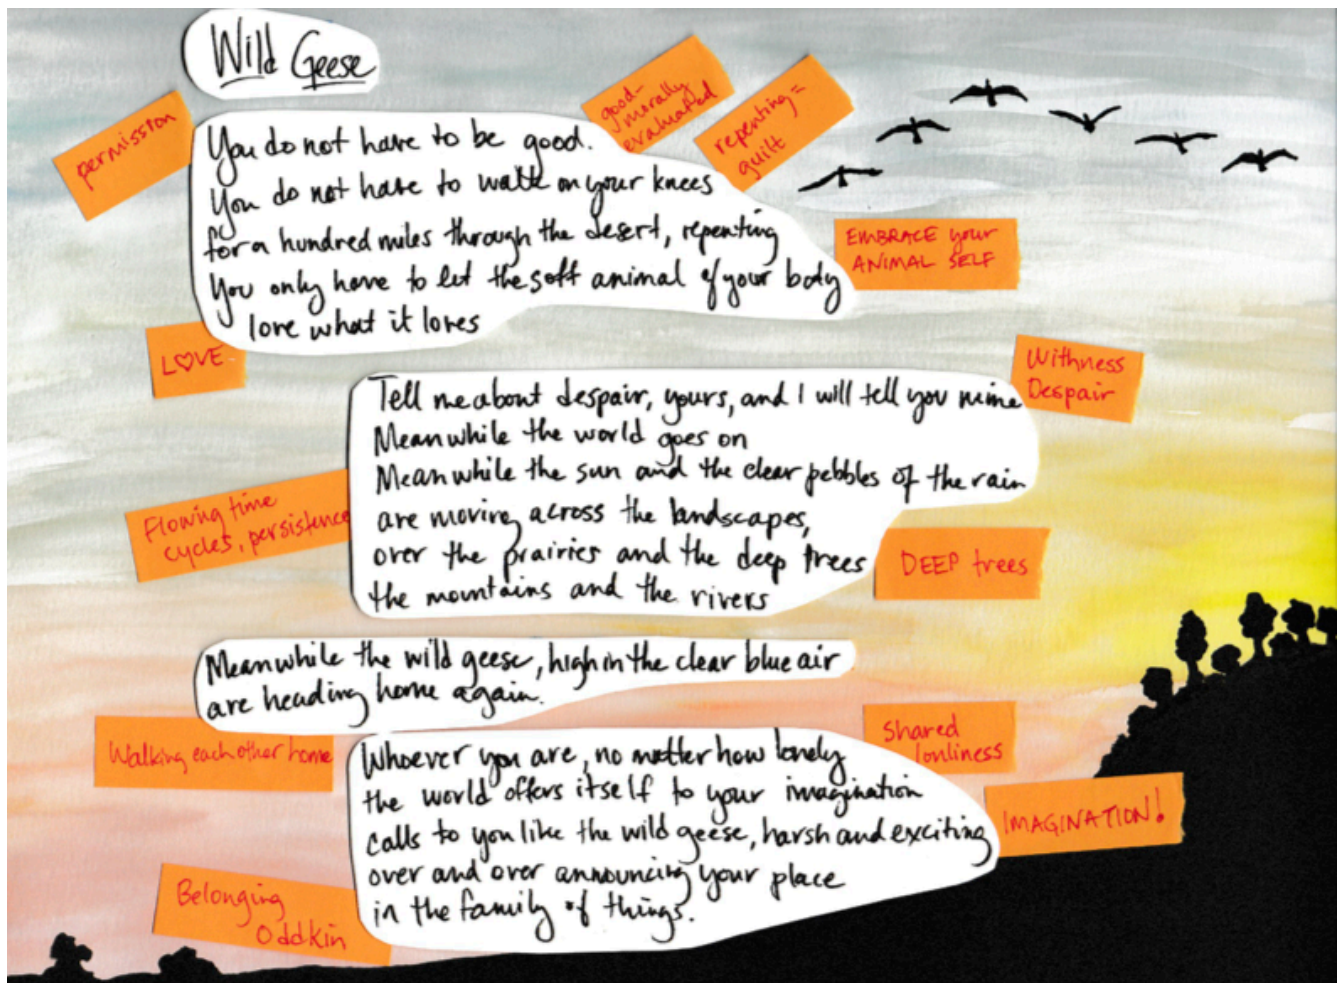 Wild Geese
permission
good-
morally
evaluated
repenting =
guilt
You do not have to be good.
You do not have to walk on your knees
for a hundred miles through the desert, repenting
You only have to let the soft animal of your body
love what it loves
EMBRACE your
ANIMAL SELF
L♡VE
Withness
Despair
Tell me about despair, yours, and I will tell you mine
Meanwhile the world goes on
Meanwhile the sun and the clear pebbles of the rain
are moving across the landscapes,
over the prairies and the deep trees
the mountains and the rivers
Flowing time
cycles, persistence
DEEP trees
Meanwhile the wild geese, high in the clear blue air
are heading home again.
Walking each other home
Shared
lonliness
Whoever you are, no matter how lonely
the world offers itself to your imagination
calls to you like the wild geese, harsh and exciting
over and over announcing your place
in the family of things.
IMAGINATION!
Belonging
Oddkin